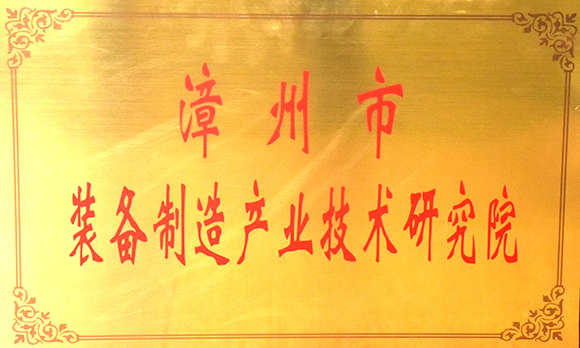 漳州市
装备制造产业技术研究院